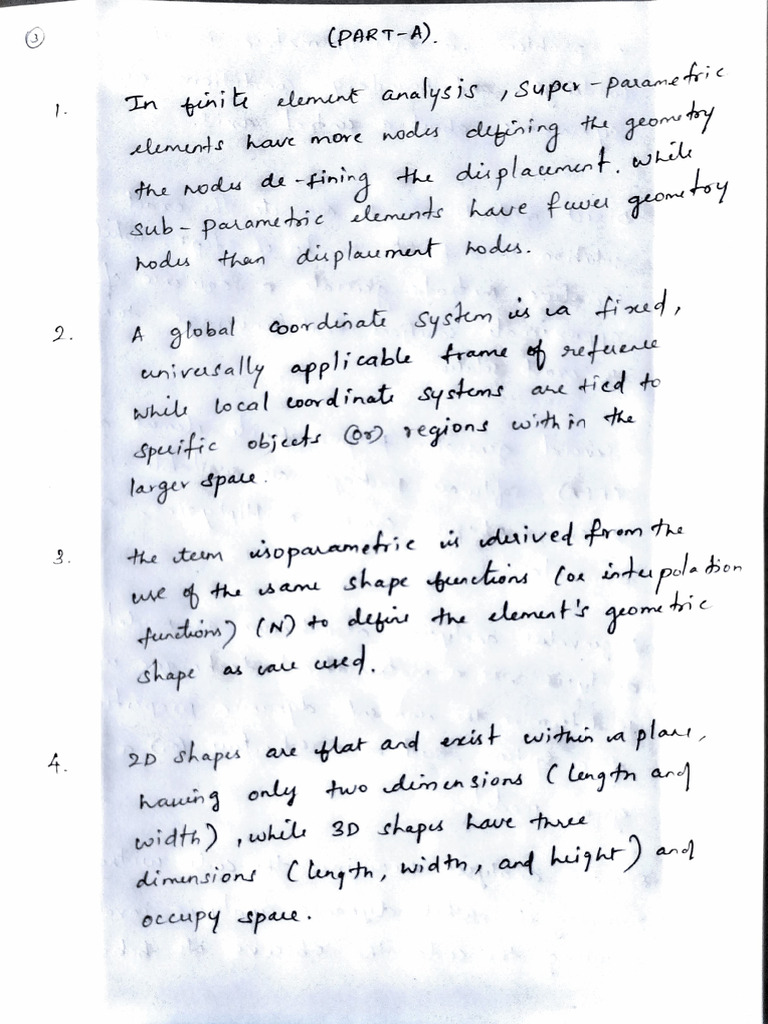 3
(PART-A).
1. In finite element analysis, super-parametric
elements have more nodes defining the geometry
the nodes de-fining the displacement. while
sub-parametric elements have fewer geometry
nodes than displacement nodes.
2. A global coordinate system is a fixed,
universally applicable frame of reference
while local coordinate systems are tied to
specific objects (or) regions within the
larger space.
3. the term isoparametric is derived from the
use of the same shape functions (or interpolation
functions) (N) to define the element's geometric
shape as are used.
4. 2D shapes are flat and exist within a plane,
having only two dimensions (length and
width), while 3D shapes have three
dimensions (length, width, and height) and
occupy space.